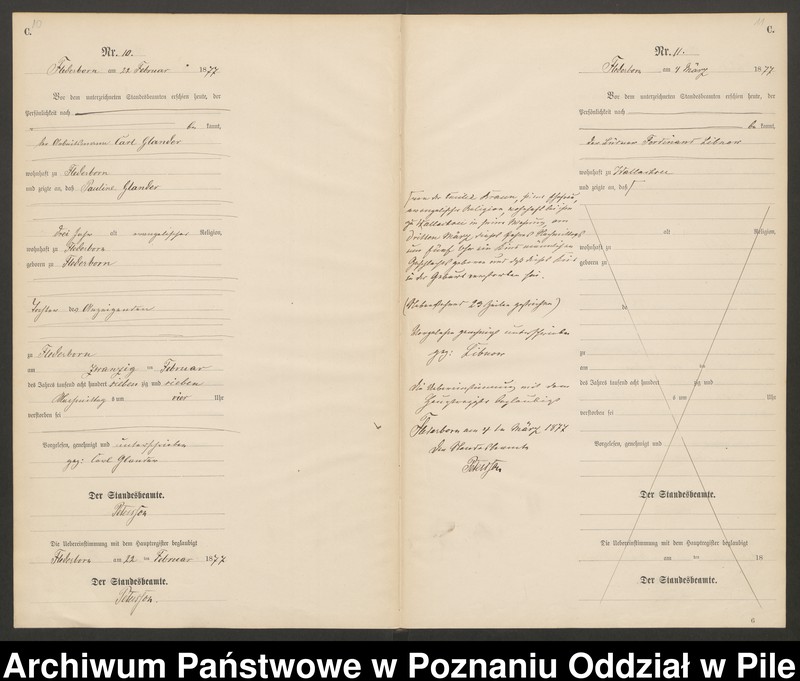 C.
Nr. 10.
Flederborn am 22 Februar 1877
Vor dem unterzeichneten Standesbeamten erschien heute, der
Persönlichkeit nach
be kannt,
der Arbeitsmann Carl Glander
wohnhaft zu Flederborn
und zeigte an, daß Pauline Glander
drei Jahr alt evangelischer Religion,
wohnhaft zu Flederborn
geboren zu Flederborn
Tochter des Anzeigenden
zu Flederborn
am zwanzig ten Februar
des Jahres tausend acht hundert sieben zig und sieben
Nachmittag s um vier Uhr
verstorben sei
Vorgelesen, genehmigt und unterschrieben
gez: Carl Glander
Der Standesbeamte.
Petersson
Die Uebereinstimmung mit dem Hauptregister beglaubigt
Flederborn am 22 ten Februar 1877
Der Standesbeamte.
Petersson.
C.
Nr. 11.
Flederborn am 4 März 1877
Vor dem unterzeichneten Standesbeamten erschien heute, der
Persönlichkeit nach
be kannt,
der Ferdinand Libnow
wohnhaft zu Wallachsee
und zeigte an, daß
alt Religion,
wohnhaft zu
geboren zu
de
zu
am ten
des Jahres tausend acht hundert zig und
s um Uhr
verstorben sei
Vorgelesen, genehmigt und
Der Standesbeamte.
Die Uebereinstimmung mit dem Hauptregister beglaubigt
am ten 18
Der Standesbeamte.
6
von der seine Ehefrau,
evangelischer Religion wohnhaft bei ihm
zu Wallachsee in seine Wohnung am
dritten März dieses Jahres Nachmittags
um fünf Uhr ein Kind männlichen
Geschlechts geboren und daß dieses Kind
in der Geburt verstorben sei.
(Nebenstehend 23 Zeilen gestrichen)
Vorgelesen genehmigt unterschrieben
gez: Libnow
Die Uebereinstimmung mit dem
Hauptregister beglaubigt
Flederborn am 4 ten März 1877
Der Standesbeamte
Petersson
Archiwum Państwowe w Poznaniu Oddział w Pile